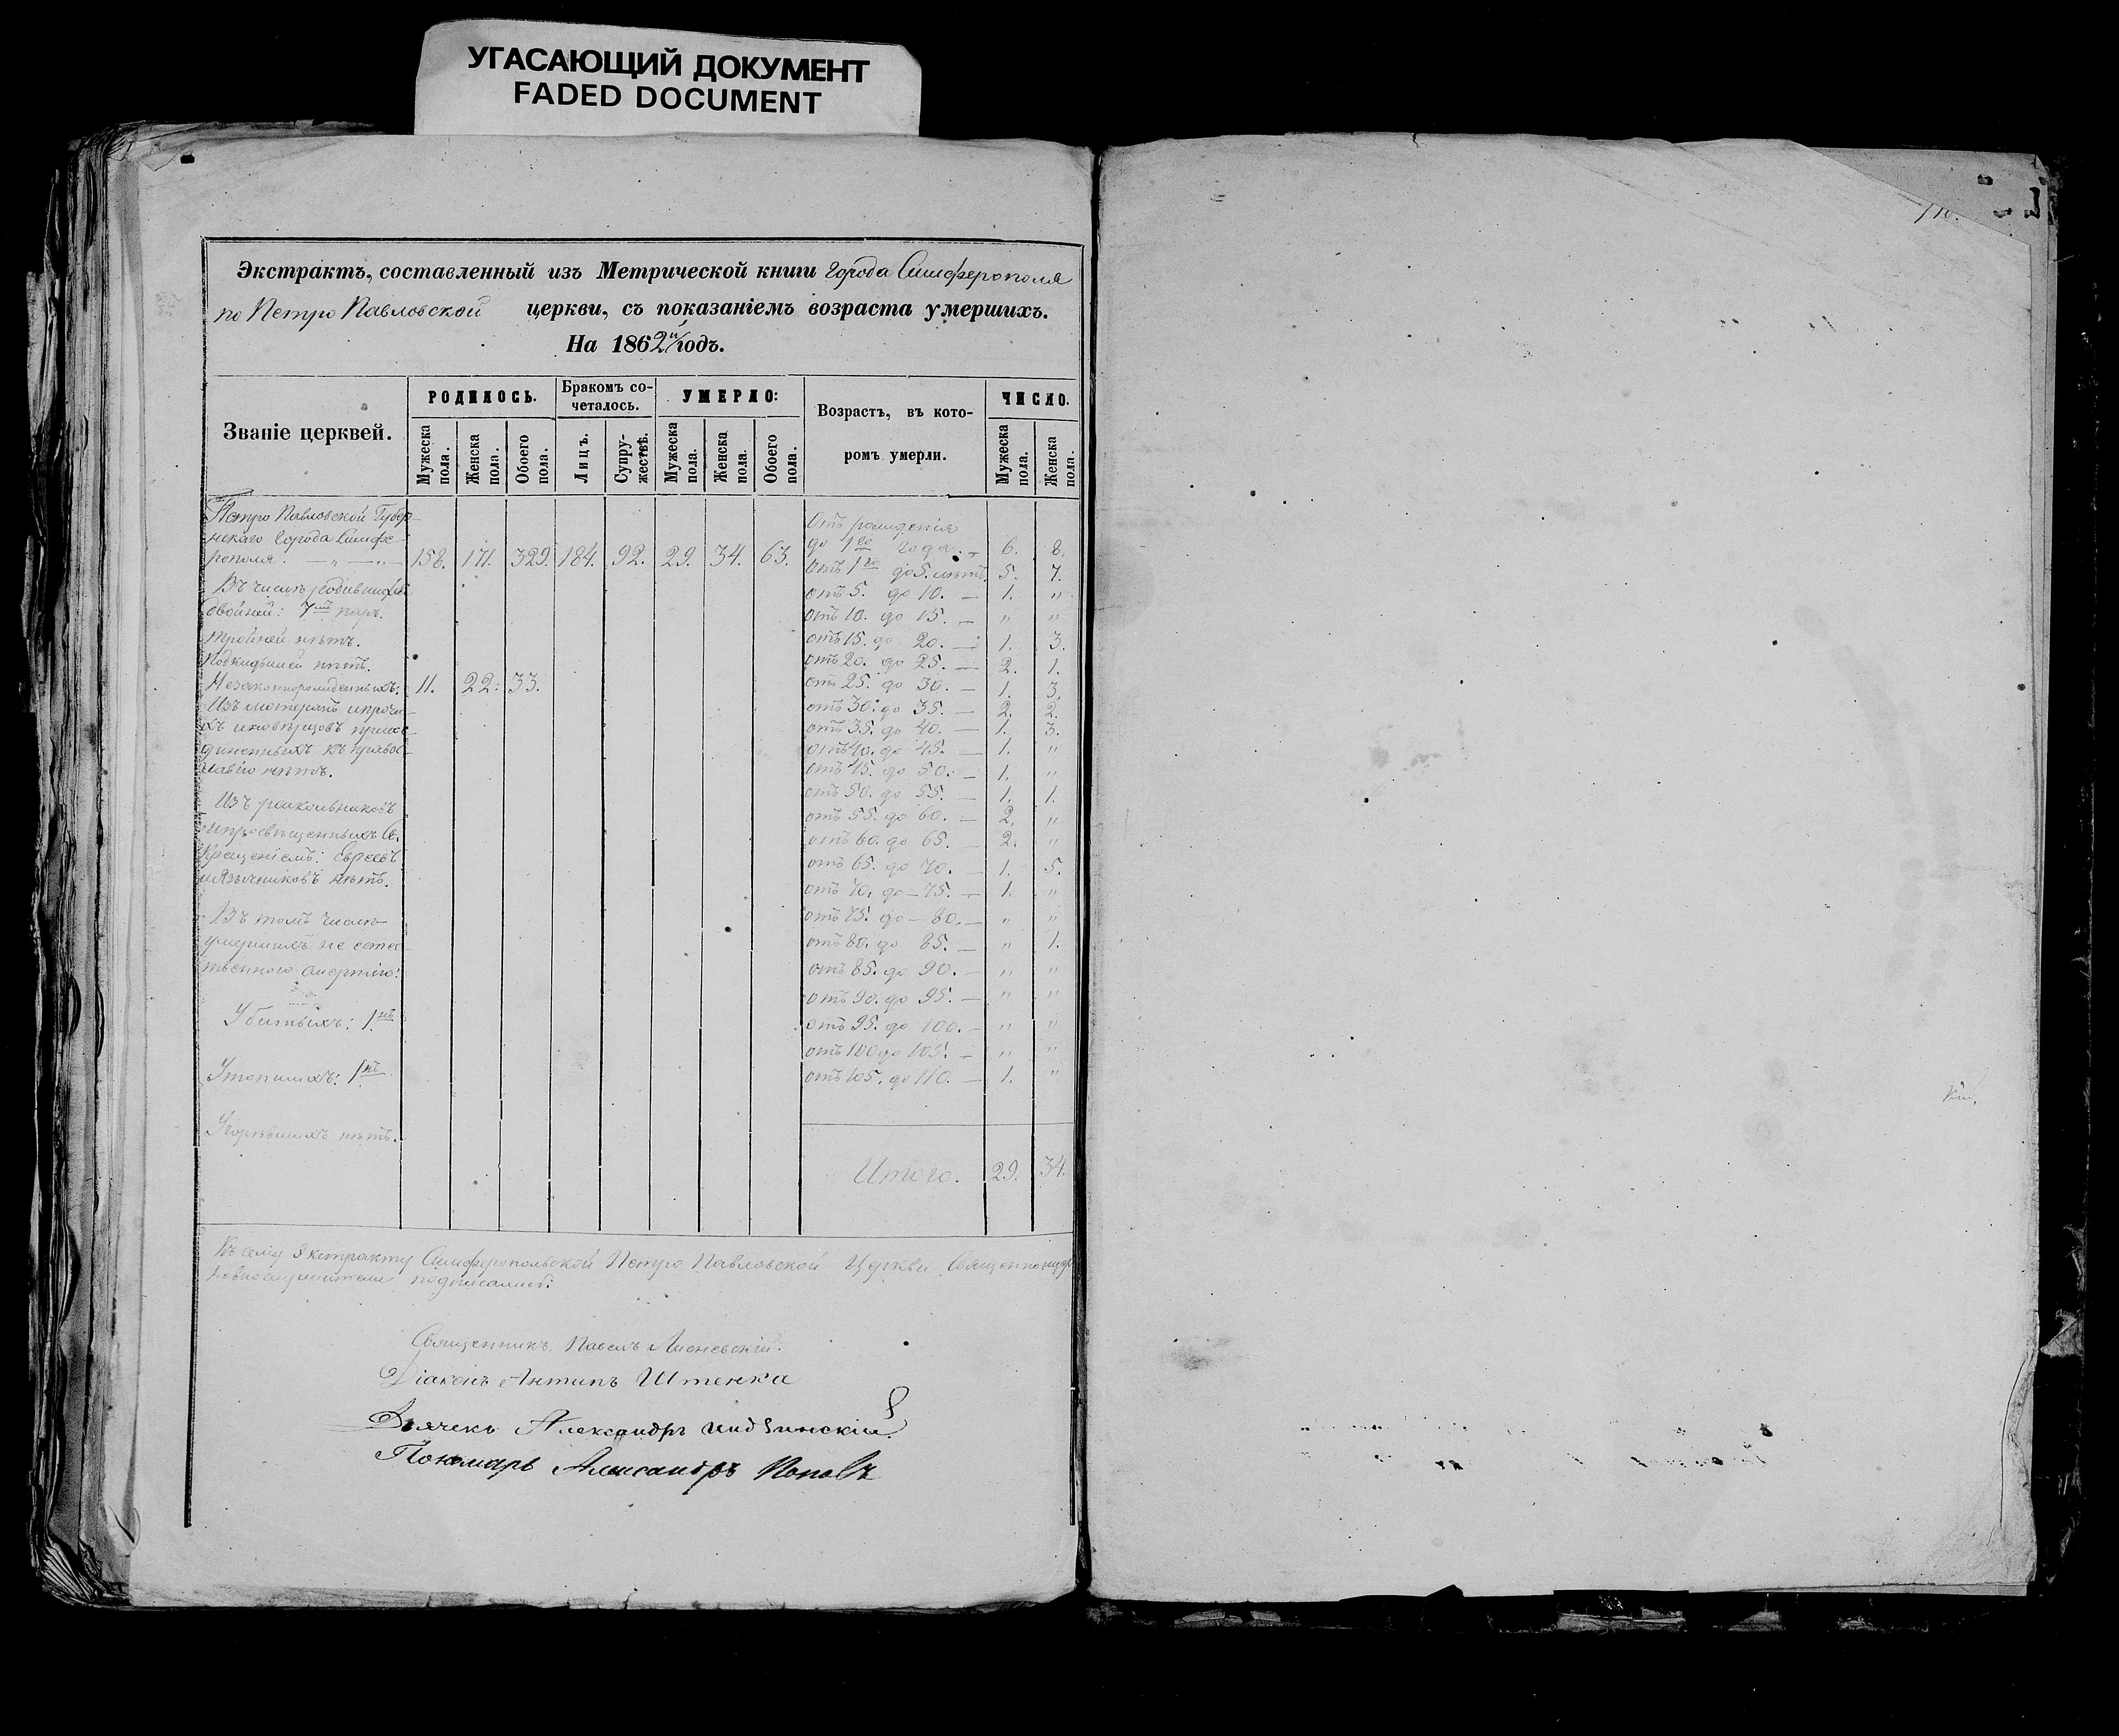 УГАСАЮЩИЙ ДОКУМЕНТ
FADED DOCUMENT
Экстрактъ, составленный изъ Метрической книги города Симферополя
по Петро Павловской церкви, съ показаніемъ возраста умершихъ.
На 1862й годъ.
Званіе церквей.
РОДИЛОСЬ.
Мужеска пола.
Женска пола.
Обоего пола.
Бракомъ со-
четалось.
Лицъ.
Супру-
жествъ.
УМЕРЛО:
Мужеска пола.
Женска пола.
Обоего пола.
Возрастъ, въ кото-
ромъ умерли.
ЧИСЛО.
Мужеска пола.
Женска пола.
Петро Павловской Губер-
нскаго города Симфе-
рополя. — „ — „ — 158. 171. 329. 184. 92. 29. 34. 63.
Въ числѣ родившихся
двойней: 7 паръ.
тройней нѣтъ.
Подкидышей нѣтъ.
Незаконнорожденныхъ: 11. 22: 33.
Изъ магометанъ и прочи-
хъ иновѣрцовъ присое-
диненныхъ къ правос-
лавію нѣтъ.
Изъ раскольниковъ
и просвѣщенныхъ Св.
Крещеніемъ: Евреевъ
и Язычниковъ нѣтъ.
Въ томъ числѣ
умершихъ не естес-
твенною смертію:
Убитыхъ: 1нъ
Утопшихъ: 1нъ
Угорѣвшихъ нѣтъ.
Отъ рожденія
до 1го года. — 6. 8.
Отъ 1го до 5. лѣтъ. 5. 7.
отъ 5. до 10. — 1. „
отъ 10. до 15. — „ „
отъ 15. до 20. — 1. 3.
отъ 20. до 25. — 2. 1.
отъ 25. до 30. — 1. 3.
отъ 30. до 35. — 2. 2.
отъ 35. до 40. — 1. 3.
отъ 40. до 45. — 1. „
отъ 45. до 50. — 1. „
отъ 50. до 55. — 1. 1.
отъ 55. до 60. — 2. „
отъ 60. до 65. — 2. „
отъ 65. до 70. — 1. 5.
отъ 70. до — 75. — 1. „
отъ 75. до — 80. — „ „
отъ 80. до 85. — „ 1.
отъ 85. до 90. — „ „
отъ 90. до 95. — „ „
отъ 95. до 100. — „ „
отъ 100 до 105. — „ „
отъ 105. до 110. — 1. „
Итого. 29. 34.
Къ сему Экстракту Симферопольской Петро Павловской Церкви Священноцер-
ковнослужители подписались:
Священникъ Павелъ
Діаконъ Антипъ Штенка
Дьячекъ Александръ
Пономарь Александръ Поповъ